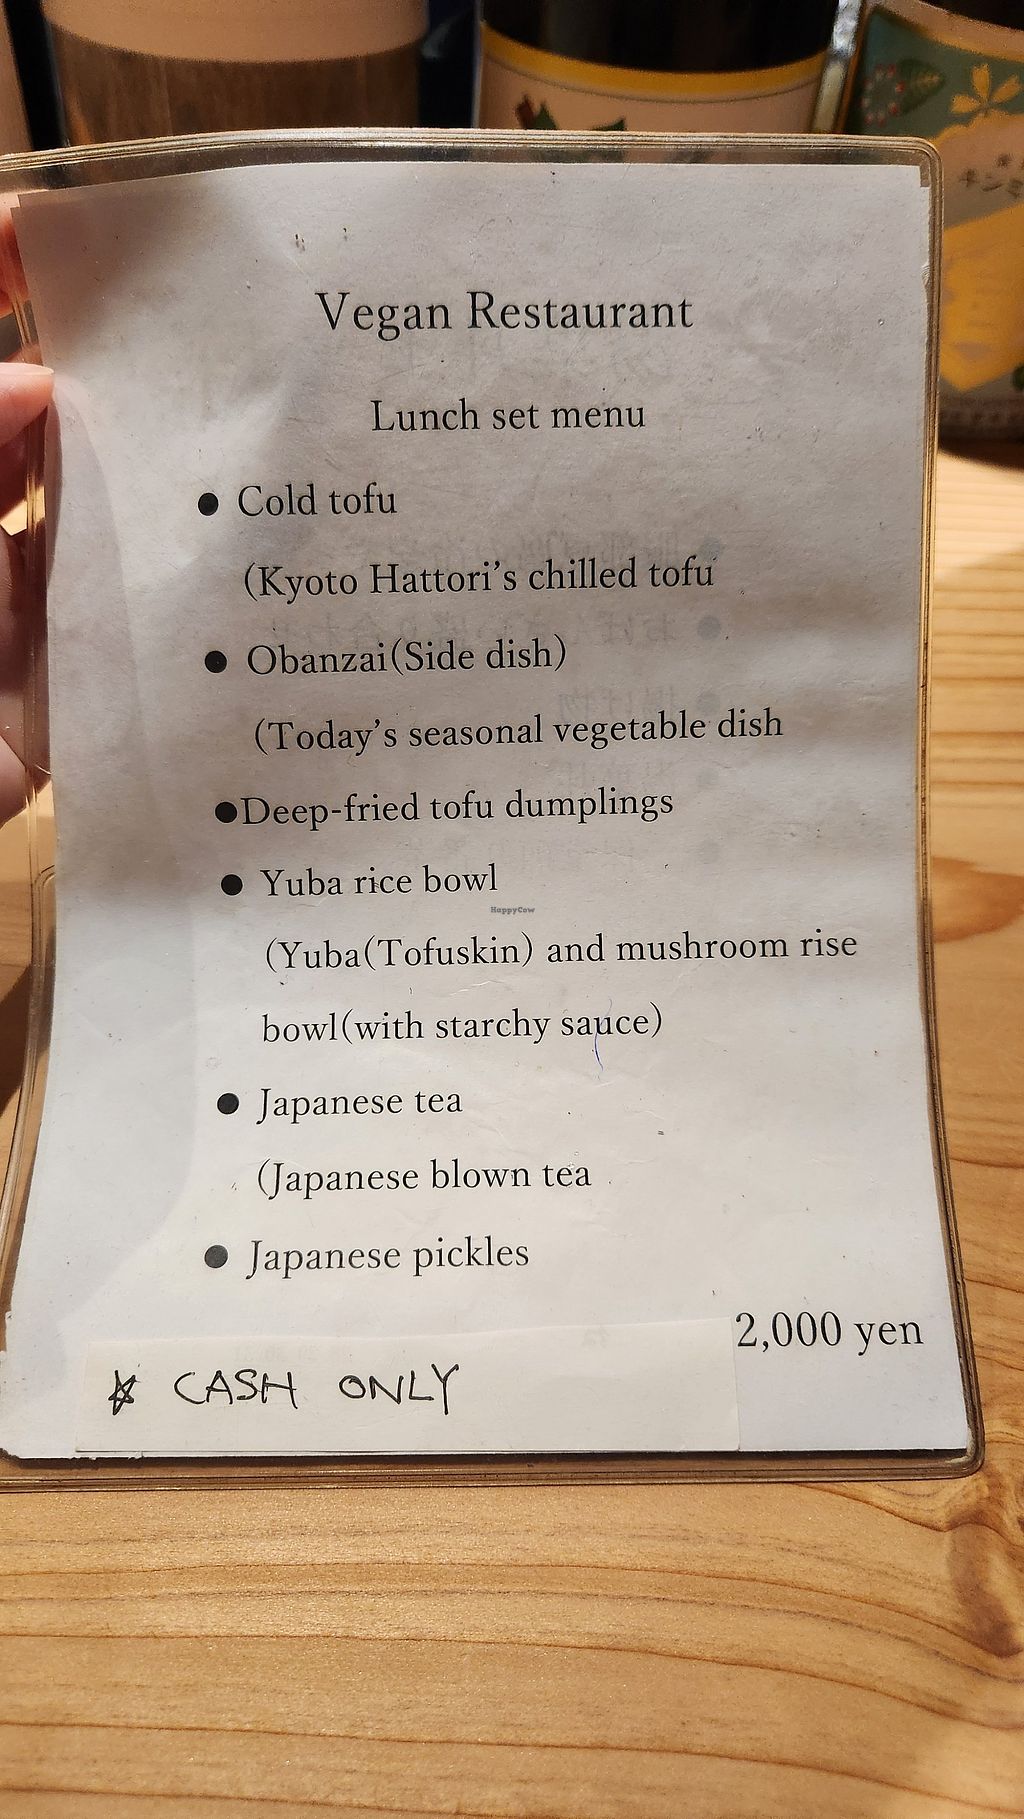 Vegan Restaurant
Lunch set menu
● Cold tofu
(Kyoto Hattori's chilled tofu
● Obanzai(Side dish)
(Today's seasonal vegetable dish
●Deep-fried tofu dumplings
● Yuba rice bowl
HappyCow
(Yuba(Tofuskin) and mushroom rise
bowl(with starchy sauce)
● Japanese tea
(Japanese blown tea
● Japanese pickles
2,000 yen
☆ CASH ONLY